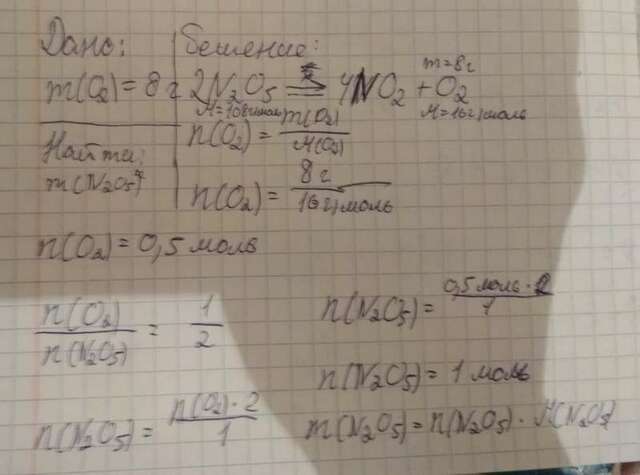 Дано:
m(O₂) = 8 г
Найти:
m(N₂O₅)
Решение:
m=8г
2N₂O₅ = 4NO₂ + O₂
M=108г/моль M=16г/моль
n(O₂) = m(O₂)/M(O₂)
n(O₂) = 8 г/16 г/моль
n(O₂) = 0,5 моль
n(O₂)/n(N₂O₅) = 1/2
n(N₂O₅) = n(O₂)·2/1
n(N₂O₅) = 0,5 моль·2/1
n(N₂O₅) = 1 моль
m(N₂O₅) = n(N₂O₅) · M(N₂O₅)